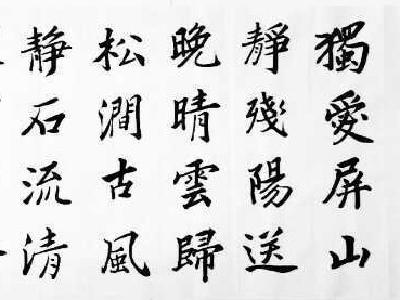 獨愛屏山
靜殘陽送
晚晴雲歸
松澗古風
静石流清